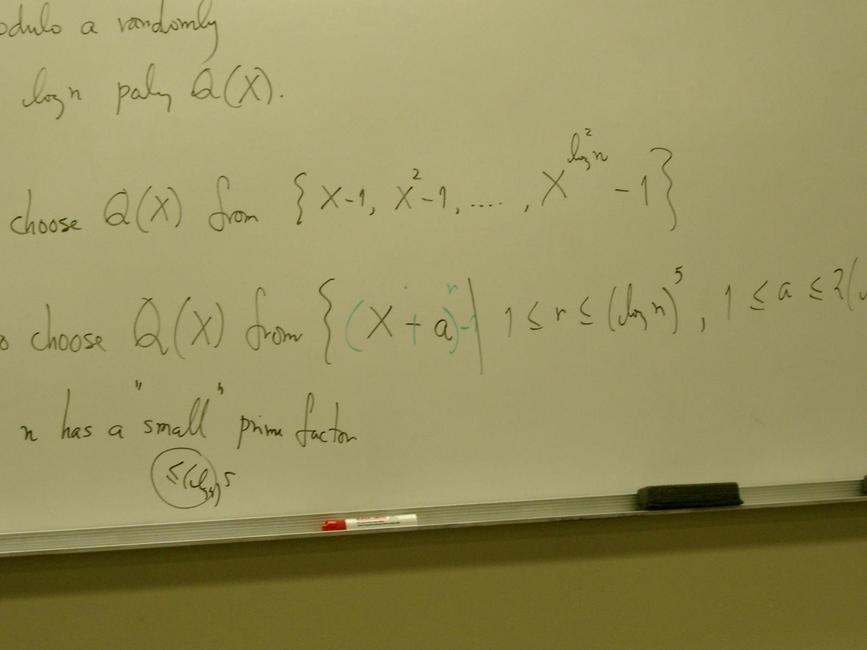 odulo a randomly
log n poly Q(X).
choose Q(X) from { X-1, X²-1, ...., X^{log² n} - 1 }
o choose Q(X) from { (X + a)^r - 1 | 1 ≤ r ≤ (log n)^5, 1 ≤ a ≤ 2(
n has a "small" prime factor
≤(log n)^5